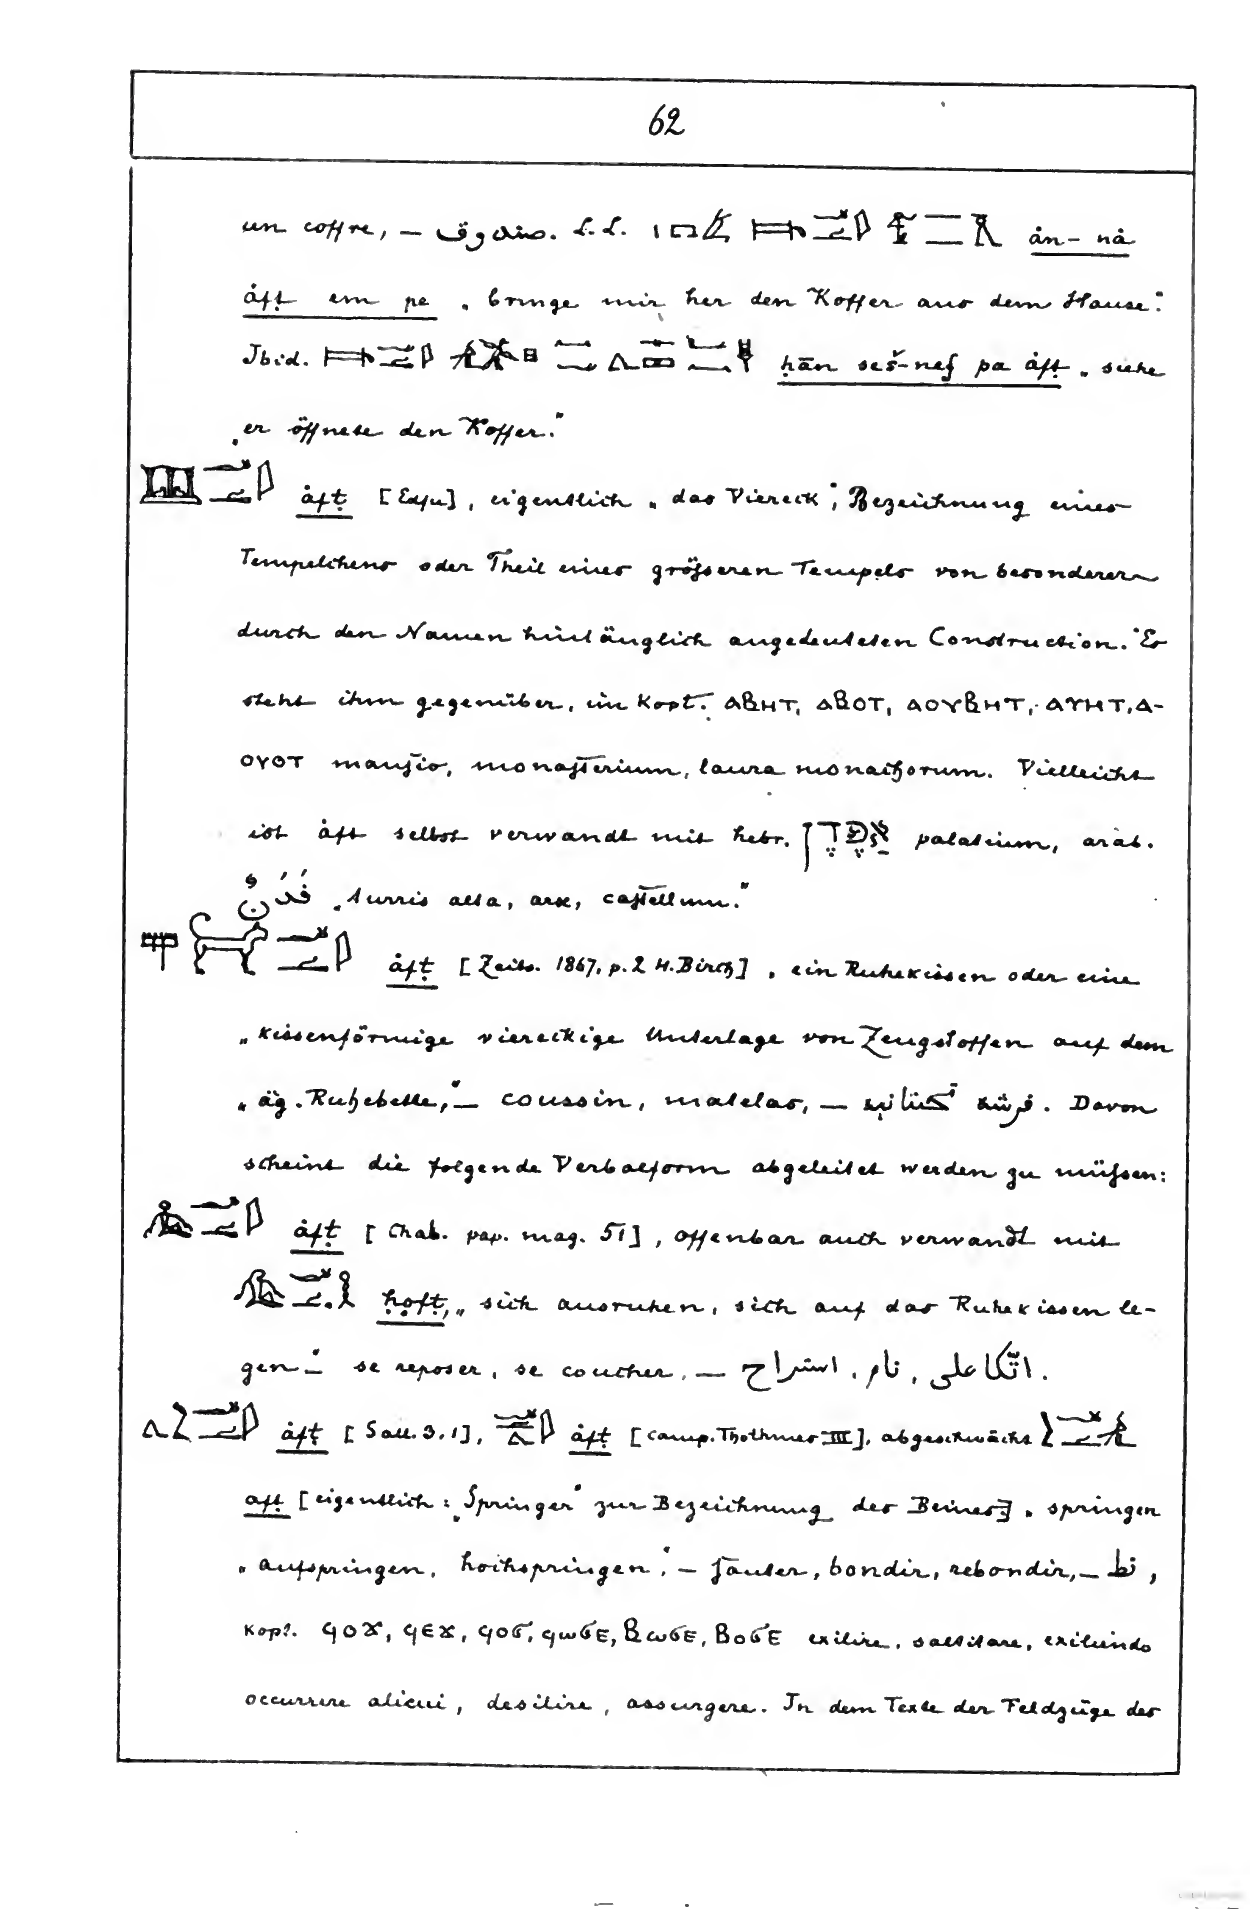 62
un coffre, — صندوق. l. l. ån-nå
åfṭ em pe „bringe mir her den Koffer aus dem Hause."
Ibid. ḥān seš-nef pa åfṭ „siehe
„er öffnete den Koffer."
åfṭ [Edfu], eigentlich „das Viereck", Bezeichnung eines
Tempelchens oder Theil eines größeren Tempels von besonderer
durch den Namen hinlänglich angedeuteten Construction. Es
steht ihm gegenüber, im Kopt. ⲁⲃⲏⲧ, ⲁⲃⲟⲧ, ⲁⲟⲩⲃⲏⲧ, ⲁⲩⲏⲧ, ⲁ-
ⲟⲩⲟⲧ mansio, monasterium, laura monachorum. Vielleicht
ist åft selbst verwandt mit hebr. אַפֶּדֶן palatium, arab.
فَدَنٌ „turris alta, arx, castellum."
åfṭ [Zeits. 1867, p. 2 H. Birch], ein Ruhekissen oder eine
„kissenförmige viereckige Unterlage von Zeugstoffen auf dem
„äg. Ruhebette," — coussin, matelas, — فرشة. Davon
scheint die folgende Verbalform abgeleitet werden zu müssen:
åfṭ [Chab. pap. mag. 51], offenbar auch verwandt mit
ḥofṭ, „sich ausruhen, sich auf das Ruhekissen le-
gen" — se reposer, se coucher, — اتّكا على, نام, استراح.
åfṭ [Sall. 3, 1], åfṭ [camp. Thothmes III], abgeschwächt
afṭ [eigentlich: „Springer" zur Bezeichnung des Beines], springen
„aufspringen, hochspringen", — sauter, bondir, rebondir, — نط,
kopt. ϥⲟϫ, ϥⲉϫ, ϥⲟϭ, ϥⲱϭⲉ, ⲃⲱϭⲉ, ⲃⲟϭⲉ exilire, saltitare, exiliendo
occurrere alicui, desilire, assurgere. In dem Texte der Feldzüge des